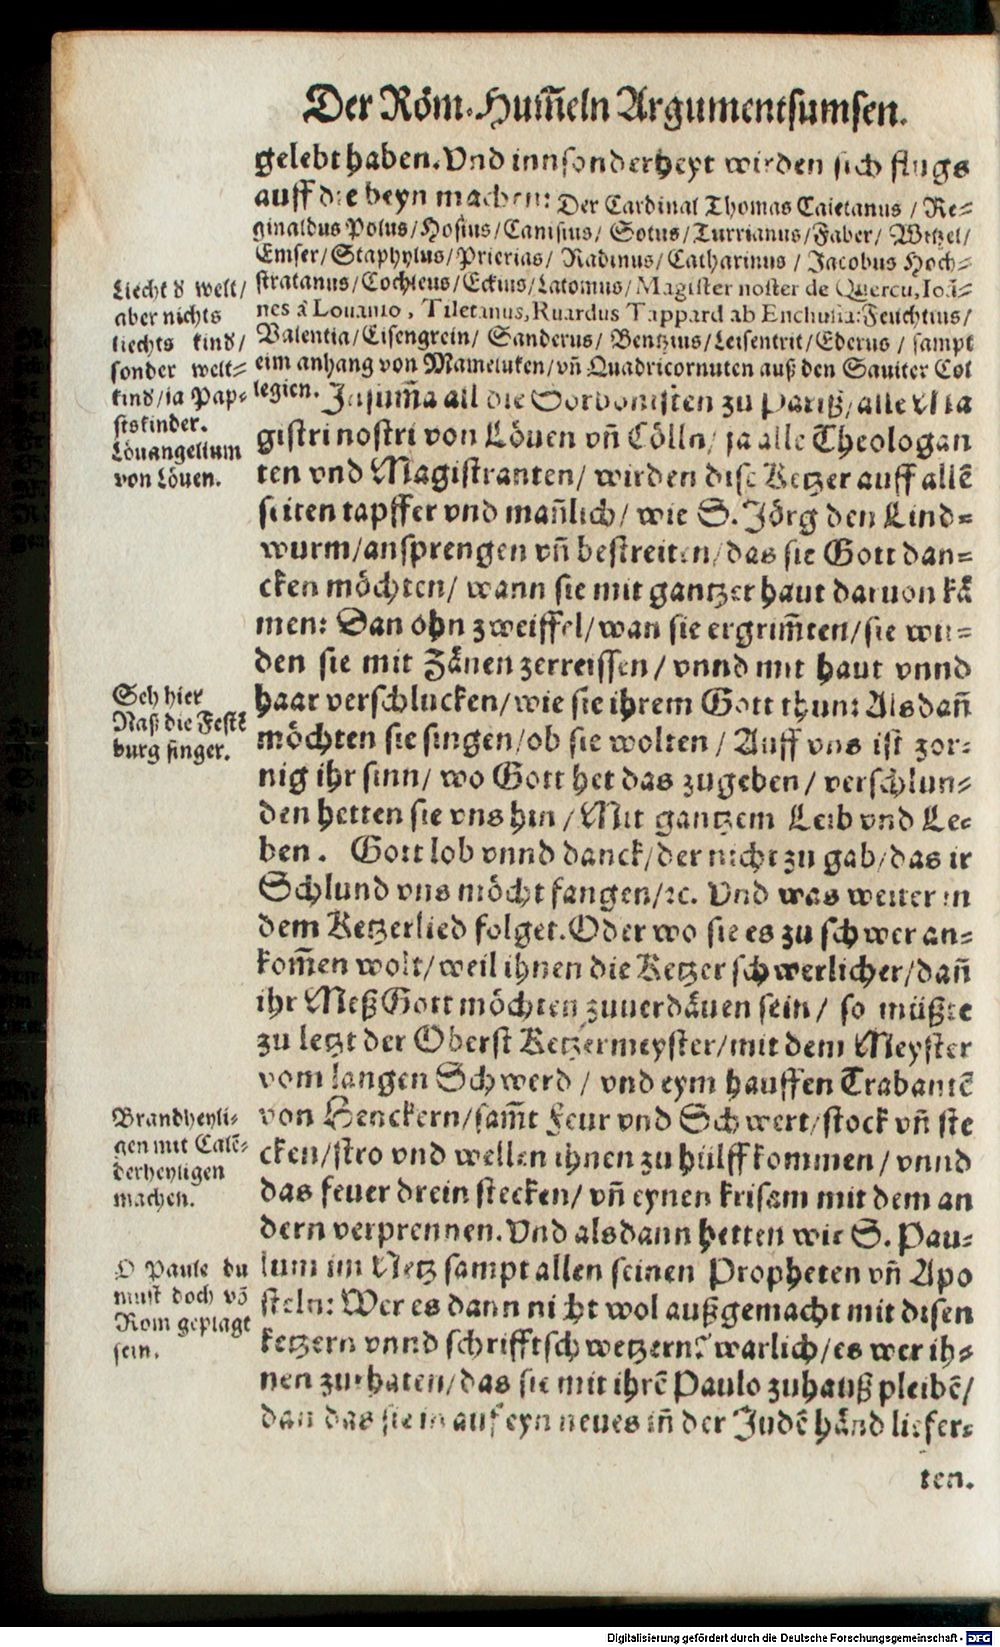 Der Röm. Hum̃eln Argumentsumsen.
gelebt haben. Vnd innsonderheyt wirden sich flugs
auff die beyn machen: Der Cardinal Thomas Caietanus / Re-
ginaldus Polus/Hosius/Canisius/ Sotus/Turrianus/Faber/ Witzel/
Emser/Staphylus/Prierias/ Radinus/Catharinus / Jacobus Hoch-
stratanus/Cochleus/Eckius/Latomus/Magister noster de Quercu, Ioã-
nes à Louanio, Tiletanus, Ruardus Tappard ab Enchusia: Feuchtius/
Valentia/Eisengrein/ Sanderus/ Bentzius/Leisentrit/Ederus / sampt
eim anhang von Mameluken/vñ Quadricornuten auß den Sauiter Col
legien. In sum̃a all die Sorbonisten zu Pariß/alle Ma
gistri nostri von Löuen vñ Cölln/ ja alle Theologan
ten vnd Magistranten/ wirden dise Ketzer auff allẽ
seiten tapffer vnd mañlich/ wie S. Jörg den Lind-
wurm/ansprengen vñ bestreiten/das sie Gott dan-
cken möchten/ wann sie mit gantzer haut daruon kä
men: Dan ohn zweiffel/wan sie ergrim̃ten/sie wur-
den sie mit Zänen zerreissen / vnnd mit haut vnnd
haar verschlucken/wie sie ihrem Gott thun: Alsdañ
möchten sie singen/ob sie wolten / Auff vns ist zor-
nig ihr sinn/ wo Gott het das zugeben / verschlun-
den hetten sie vns hin / Mit gantzem Leib vnd Le-
ben. Gott lob vnnd danck/der nicht zu gab/das ir
Schlund vns möcht fangen/ꝛc. Vnd was weiter in
dem Ketzerlied folget. Oder wo sie es zu schwer an-
kom̃en wolt/weil ihnen die Ketzer schwerlicher/dañ
ihr Meß Gott möchten zuuerdäuen sein/ so müßte
zu letzt der Oberst Ketzermeyster/mit dem Meyster
vom langen Schwerd / vnd eym hauffen Trabantẽ
von Henckern/sam̃t Feur vnd Schwert/stock vñ ste
cken/stro vnd wellen ihnen zu hülff kommen / vnnd
das feuer drein stecken/ vñ eynen krisam mit dem an
dern verprennen. Vnd alsdann hetten wir S. Pau-
lum im Netz sampt allen seinen Propheten vñ Apo
steln: Wer es dann nicht wol außgemacht mit disen
ketzern vnnd schrifftschwetzern? warlich/es wer ih-
nen zurhaten/das sie mit ihrẽ Paulo zuhauß pleibẽ/
dan das sie in auf eyn neues iñ der Judẽ händ liefer-
ten.
Liecht d welt/
aber nichts
liechts kind/
sonder welt-
kind/ja Pap-
stskinder.
Löuangelium
von Löuen.
Seh hier
Naß die Festẽ
burg singer.
Brandheyli-
gen mit Calẽ-
derheyligen
machen.
O Paule du
must doch võ
Rom geplagt
sein.
Digitalisierung gefördert durch die Deutsche Forschungsgemeinschaft - DFG